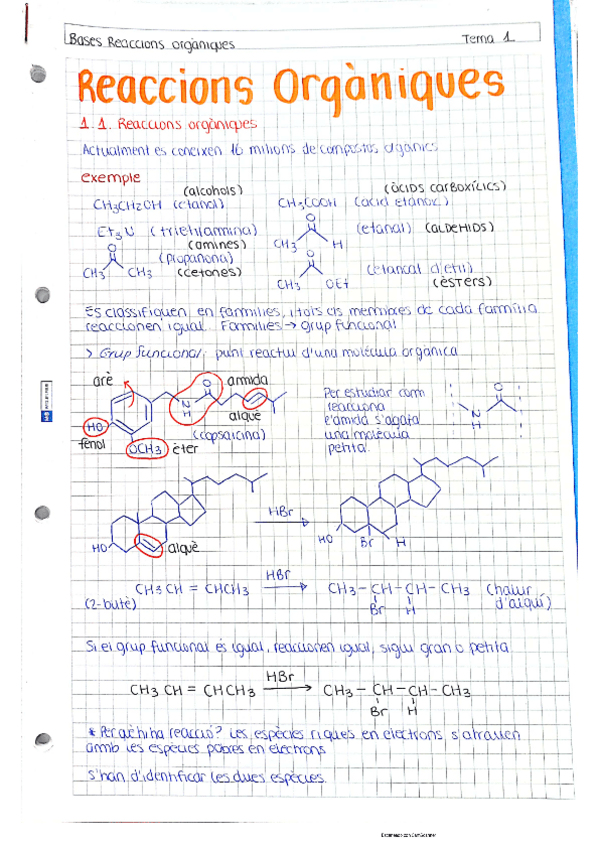 Bases Reaccions orgàniques Tema 1
Reaccions Orgàniques
1.1. Reaccions orgàniques
Actualment es coneixen 16 milions de compostos orgànics
exemple
(alcohols) (ÀCIDS CARBOXÍLICS)
CH3CH2OH (etanol) CH3COOH (àcid etanoic)
Et3N (trietilamina) (etanal) (ALDEHIDS)
(amines) CH3 H
O (propanona) O
CH3 CH3 (cetones) (etanoat d'etil)
CH3 OEt (èSTERS)
Es classifiquen en famílies, i tots els membres de cada família
reaccionen igual. Famílies → grup funcional
> Grup funcional: punt reactiu d'una molècula orgànica
arè O amida
N H
HO alquè
fenol OCH3 èter (capsaicina)
Per estudiar com
reacciona
l'amida s'agafa
una molècula
petita.
O
N
H
HBr
HO alquè HO Br H
CH3CH = CHCH3 HBr CH3 - CH - CH - CH3 (halur
(2-butè) Br H d'alquil)
Si el grup funcional és igual, reaccionen igual, sigui gran o petita
CH3CH = CHCH3 HBr CH3 - CH - CH - CH3
Br H
* Per què hi ha reacció? Les espècies riques en electrons s'atrauen
amb les espècies pobres en electrons
S'han d'identificar les dues espècies.
Escaneado con CamScanner